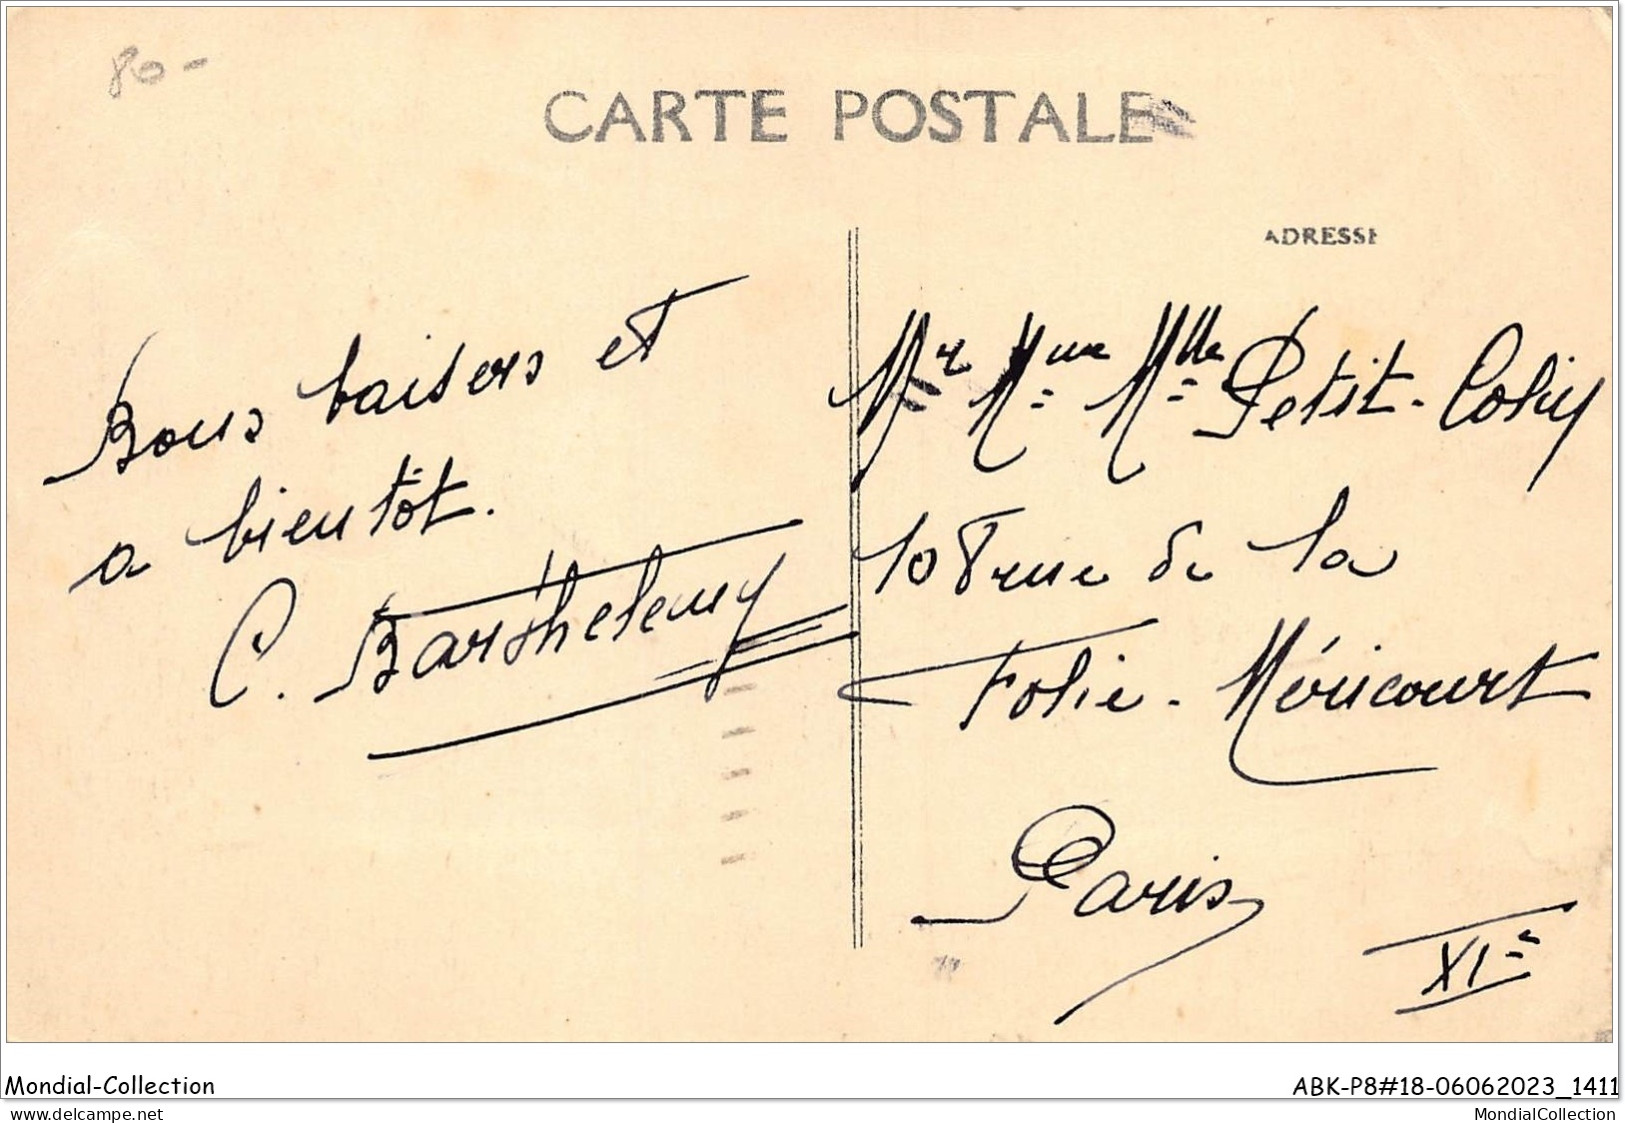 80-
CARTE POSTALE
ADRESSE
Bons baisers et
a bientôt.
C. Barthelemy
Mr Mme Mlle Petit-Colin
108 rue de la
Folie-Méricourt
Paris
XIe
Mondial-Collection
ABK-P8#18-06062023_1411
www.delcampe.net
MondialCollection